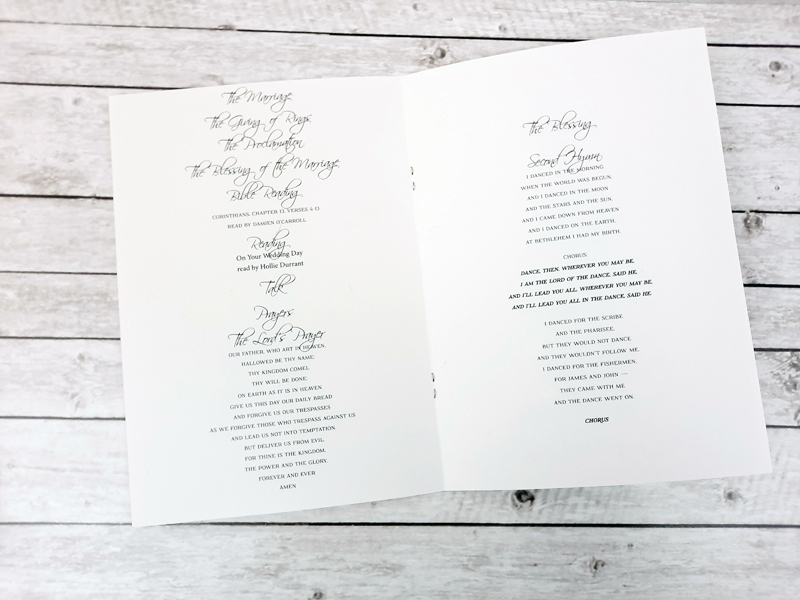 The Marriage
The Giving of Rings
The Proclamation
The Blessing of the Marriage
Bible Reading
CORINTHIANS, CHAPTER 13, VERSES 4-13
READ BY DAMIEN O'CARROLL
Reading
On Your Wedding Day
read by Hollie Durrant
Talk
Prayers
The Lord's Prayer
OUR FATHER, WHO ART IN HEAVEN,
HALLOWED BE THY NAME;
THY KINGDOM COME;
THY WILL BE DONE;
ON EARTH AS IT IS IN HEAVEN.
GIVE US THIS DAY OUR DAILY BREAD
AND FORGIVE US OUR TRESPASSES
AS WE FORGIVE THOSE WHO TRESPASS AGAINST US
AND LEAD US NOT INTO TEMPTATION,
BUT DELIVER US FROM EVIL.
FOR THINE IS THE KINGDOM,
THE POWER AND THE GLORY,
FOREVER AND EVER
AMEN
The Blessing
Second Hymn
I DANCED IN THE MORNING
WHEN THE WORLD WAS BEGUN,
AND I DANCED IN THE MOON
AND THE STARS AND THE SUN,
AND I CAME DOWN FROM HEAVEN
AND I DANCED ON THE EARTH,
AT BETHLEHEM I HAD MY BIRTH.
CHORUS:
DANCE, THEN, WHEREVER YOU MAY BE,
I AM THE LORD OF THE DANCE, SAID HE,
AND I'LL LEAD YOU ALL, WHEREVER YOU MAY BE,
AND I'LL LEAD YOU ALL IN THE DANCE, SAID HE.
I DANCED FOR THE SCRIBE
AND THE PHARISEE,
BUT THEY WOULD NOT DANCE
AND THEY WOULDN'T FOLLOW ME.
I DANCED FOR THE FISHERMEN,
FOR JAMES AND JOHN —
THEY CAME WITH ME
AND THE DANCE WENT ON.
CHORUS